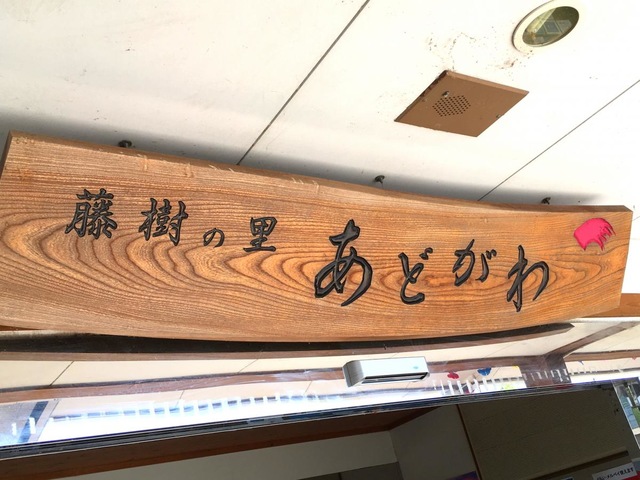 藤樹の里 あどがわ